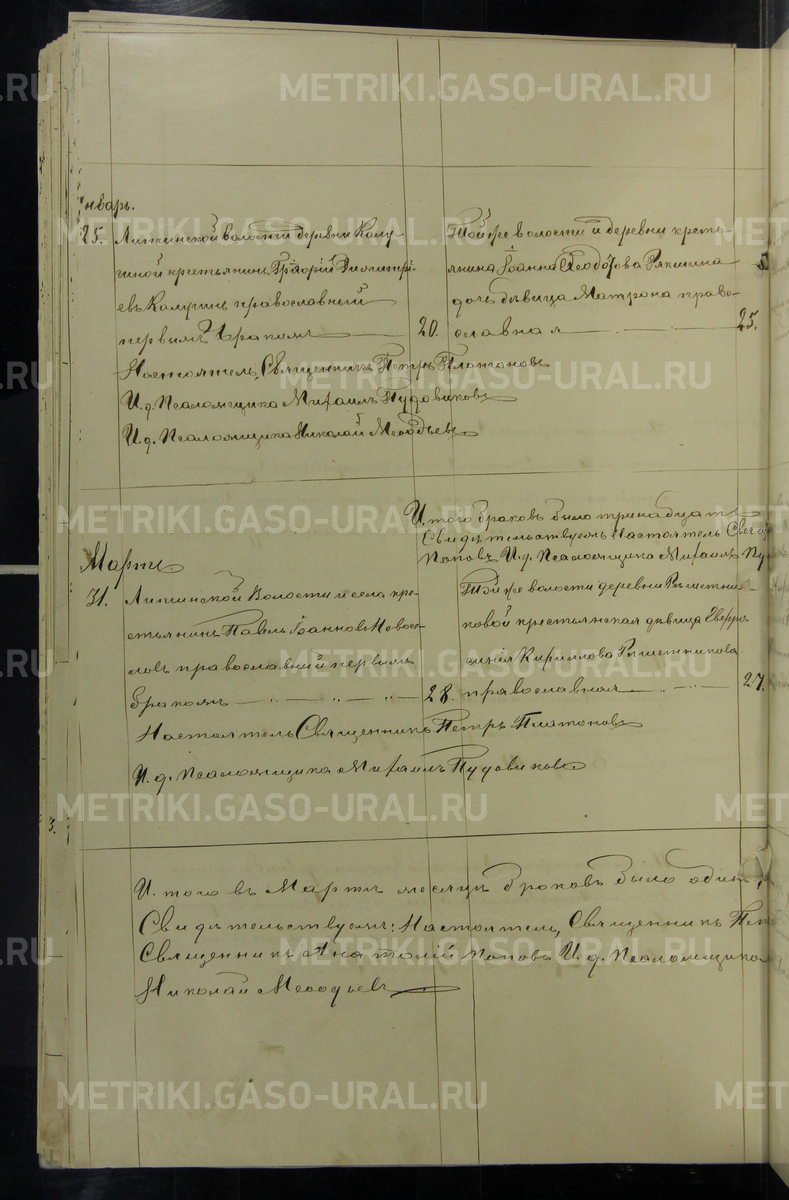 METRIKI.GASO-URAL.RU
Январь.
25. Липинской волости деревни Калу-
гиной крестьянинъ Григорій Димитрі-
евъ Калугинъ православный
первымъ бракомъ 20.
Той же волости и деревни кресть-
янина Іоанна Ѳеодотова Рякшина
дочь дѣвица Матрона право-
славная 25.
Настоятель, Священникъ Петръ Платоновъ
И. д. Псаломщика Михаилъ Пудовиковъ
И. д. Псаломщика Николай Меѳодьевъ
И того браковъ было тринадцать
Свидѣтельствуемъ Настоятель Свящ
Поповъ И. д. Псаломщика Михаилъ Пу
Мартъ
31. Липинской Волости и села кре-
стьянинъ Павелъ Іоанновъ Новосе-
ловъ православный первымъ
бракомъ 28.
Той же волости деревни Рѣшетни-
ковой крестьянская дѣвица Евфро-
синія Кириллова Рѣшетникова
православная 27.
Настоятель Священникъ Петръ Платоновъ
И. д. Псаломщика Михаилъ Пудовиковъ
И того въ Мартѣ мѣсяцѣ браковъ было одинъ
Свидѣтельствуемъ: Настоятель, Священникъ Пет
Священникъ Анатолій Поповъ И. д. Псаломщика
Николай Меѳодьевъ
3.